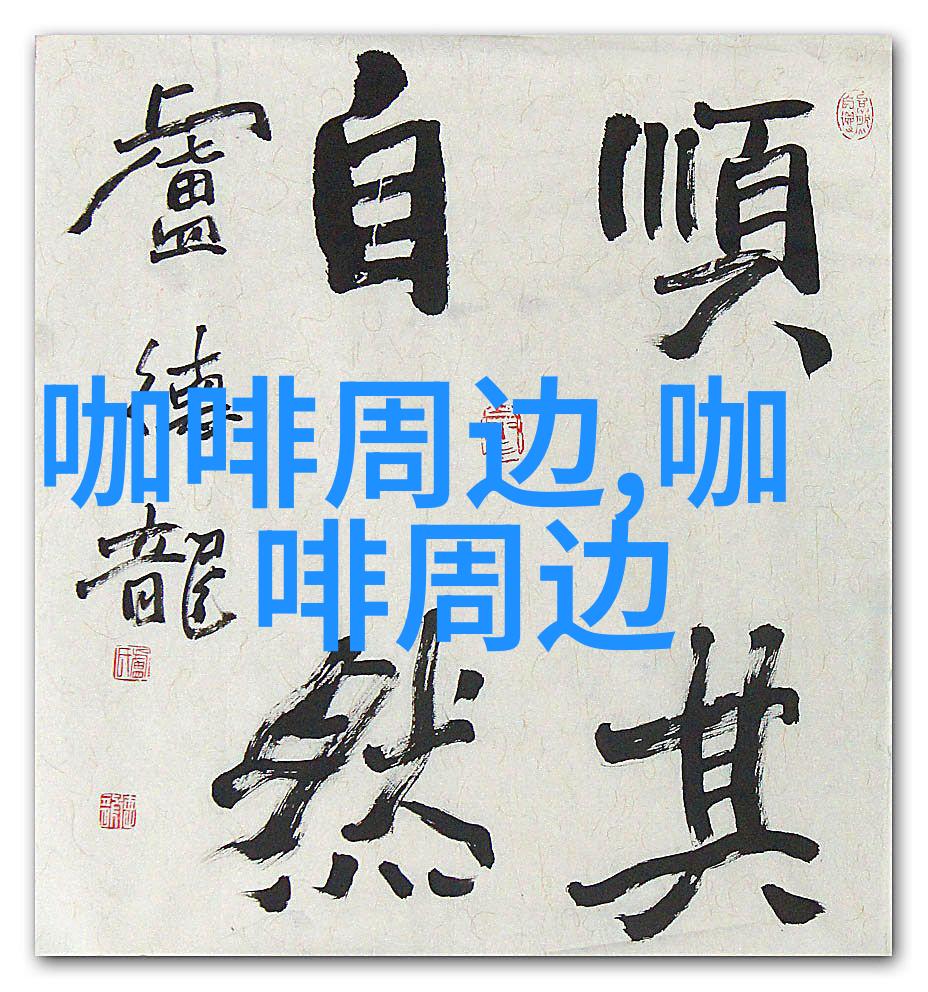 順其
自然
盧 龍
咖啡周边,咖
啡周边